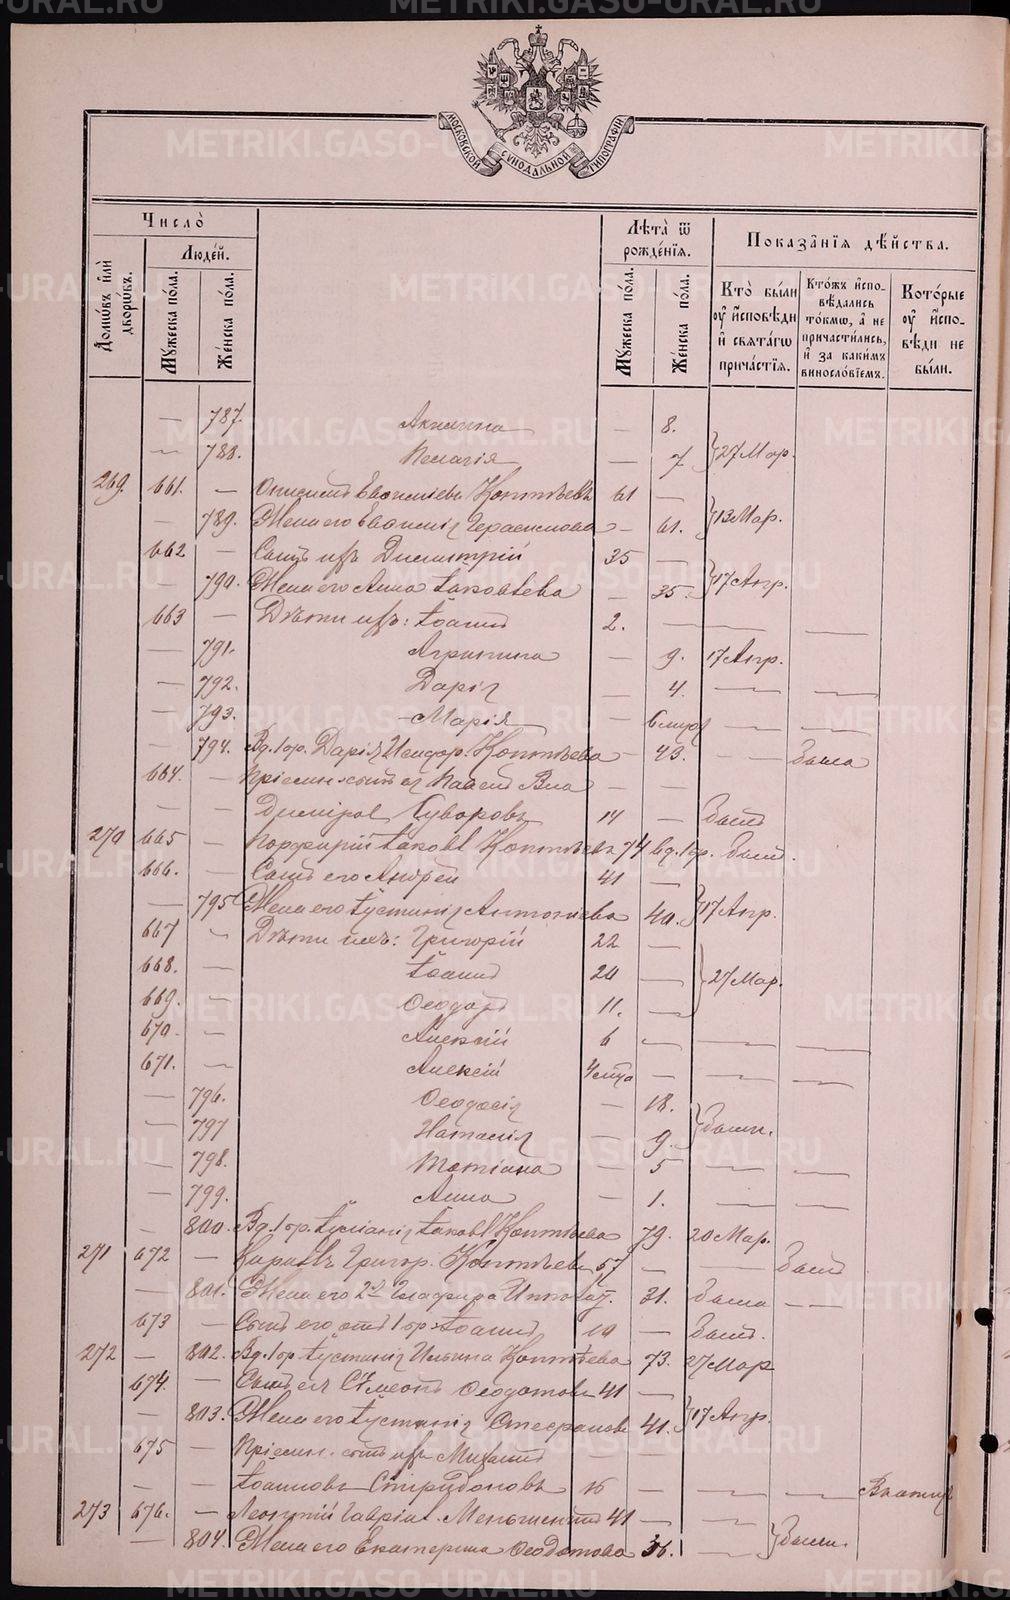 МОСКОВСКОЙ СѴНОДАЛЬНОЙ ТИПОГРАФІИ
Число̀
Людей.
Домѡвъ илѝ дворѡвъ.
Мꙋжеска по́ла.
Же́нска по́ла.
Лѣта̀ ѿ рожде́нїѧ.
Мꙋжеска по́ла.
Же́нска по́ла.
Показа̑нїѧ дѣ́йства.
Кто̀ бы́ли оу҆ и҆сповѣди и҆ свѧта́гѡ прича́стїѧ.
Кто́жъ и҆споvѣдались то́кмѡ, а҆ не причасти́лись, и҆ за каки́мъ винослові́емъ.
Кото́рые оу҆ и҆спо-вѣди не бы́ли.
— 787. Акилина — 8.
— 788. Пелагія — 7 } 27 Мар.
269. 661. — Онисимъ Евѳиміевъ Коптѣевъ 61 —
— 789. Жена его Евѳимія Герасимова — 61. } 13 Мар.
662 — Сынъ ихъ Димитрій 35 —
— 790. Жена его Анна Іаковлева — 35. } 17 Апр.
663 — Дѣти ихъ: Іоаннъ 2. — — —
— 791. Агрипина — 9. 17 Апр.
— 792. Дарія — 4. — —
— 793. Марія — 6 мцов — —
— 794. Вд. 1 бр. Дарія Никифор. Коптѣева — 43. — — Была
664. — Пріемн. сынъ ея Павелъ
— — Суворовъ 14 — Былъ
270 665 — Порфирій Іаковл. Коптѣевъ 74 вд. 1 бр. былъ.
666. — Сынъ его Андрей 41 —
— 795 Жена его Іустинія Антоніева 40. } 17 Апр.
667 — Дѣти ихъ: Григорій 22 —
668. — Іоаннъ 20 — } 27 Мар.
669. — Ѳеодоръ 11. —
670 — Алексій 6 — — —
671. — Алексій 4 мца — — —
— 796. Ѳеодосія — 18.
— 797 Наталія — 9. } Были.
— 798. Татіана — 5 — —
— 799. Анна — 1. — —
— 800. Вд. 1 бр. Іуліанія Іаковл. Коптѣева 79. 20 Мар.
271 672 — Григор. Коптѣевъ 57 — — Былъ
— 801. Жена его 2 бр. Глафира 31. Была — —
673 — Сынъ его отъ 1 бр. Іоаннъ 10 — Былъ.
272 — 802. Вд. 1 бр. Іустинія Ильина Коптѣева 73. 27 Мар
674. — Сынъ ея Сѵмеонъ Ѳеодотовъ 41 —
— 803. Жена его Іустинія Стефанова 41. } 17 Апр.
675 — Пріемн. сынъ ихъ Михаилъ
— — Іоанновъ Спиридоновъ 16 — — —
273 676. — Леонтій Гавріил. Меньшенинъ 41 — —
— 804. Жена его Екатерина Ѳеодотова 36. — } Были.
METRIKI.GASO-URAL.RU